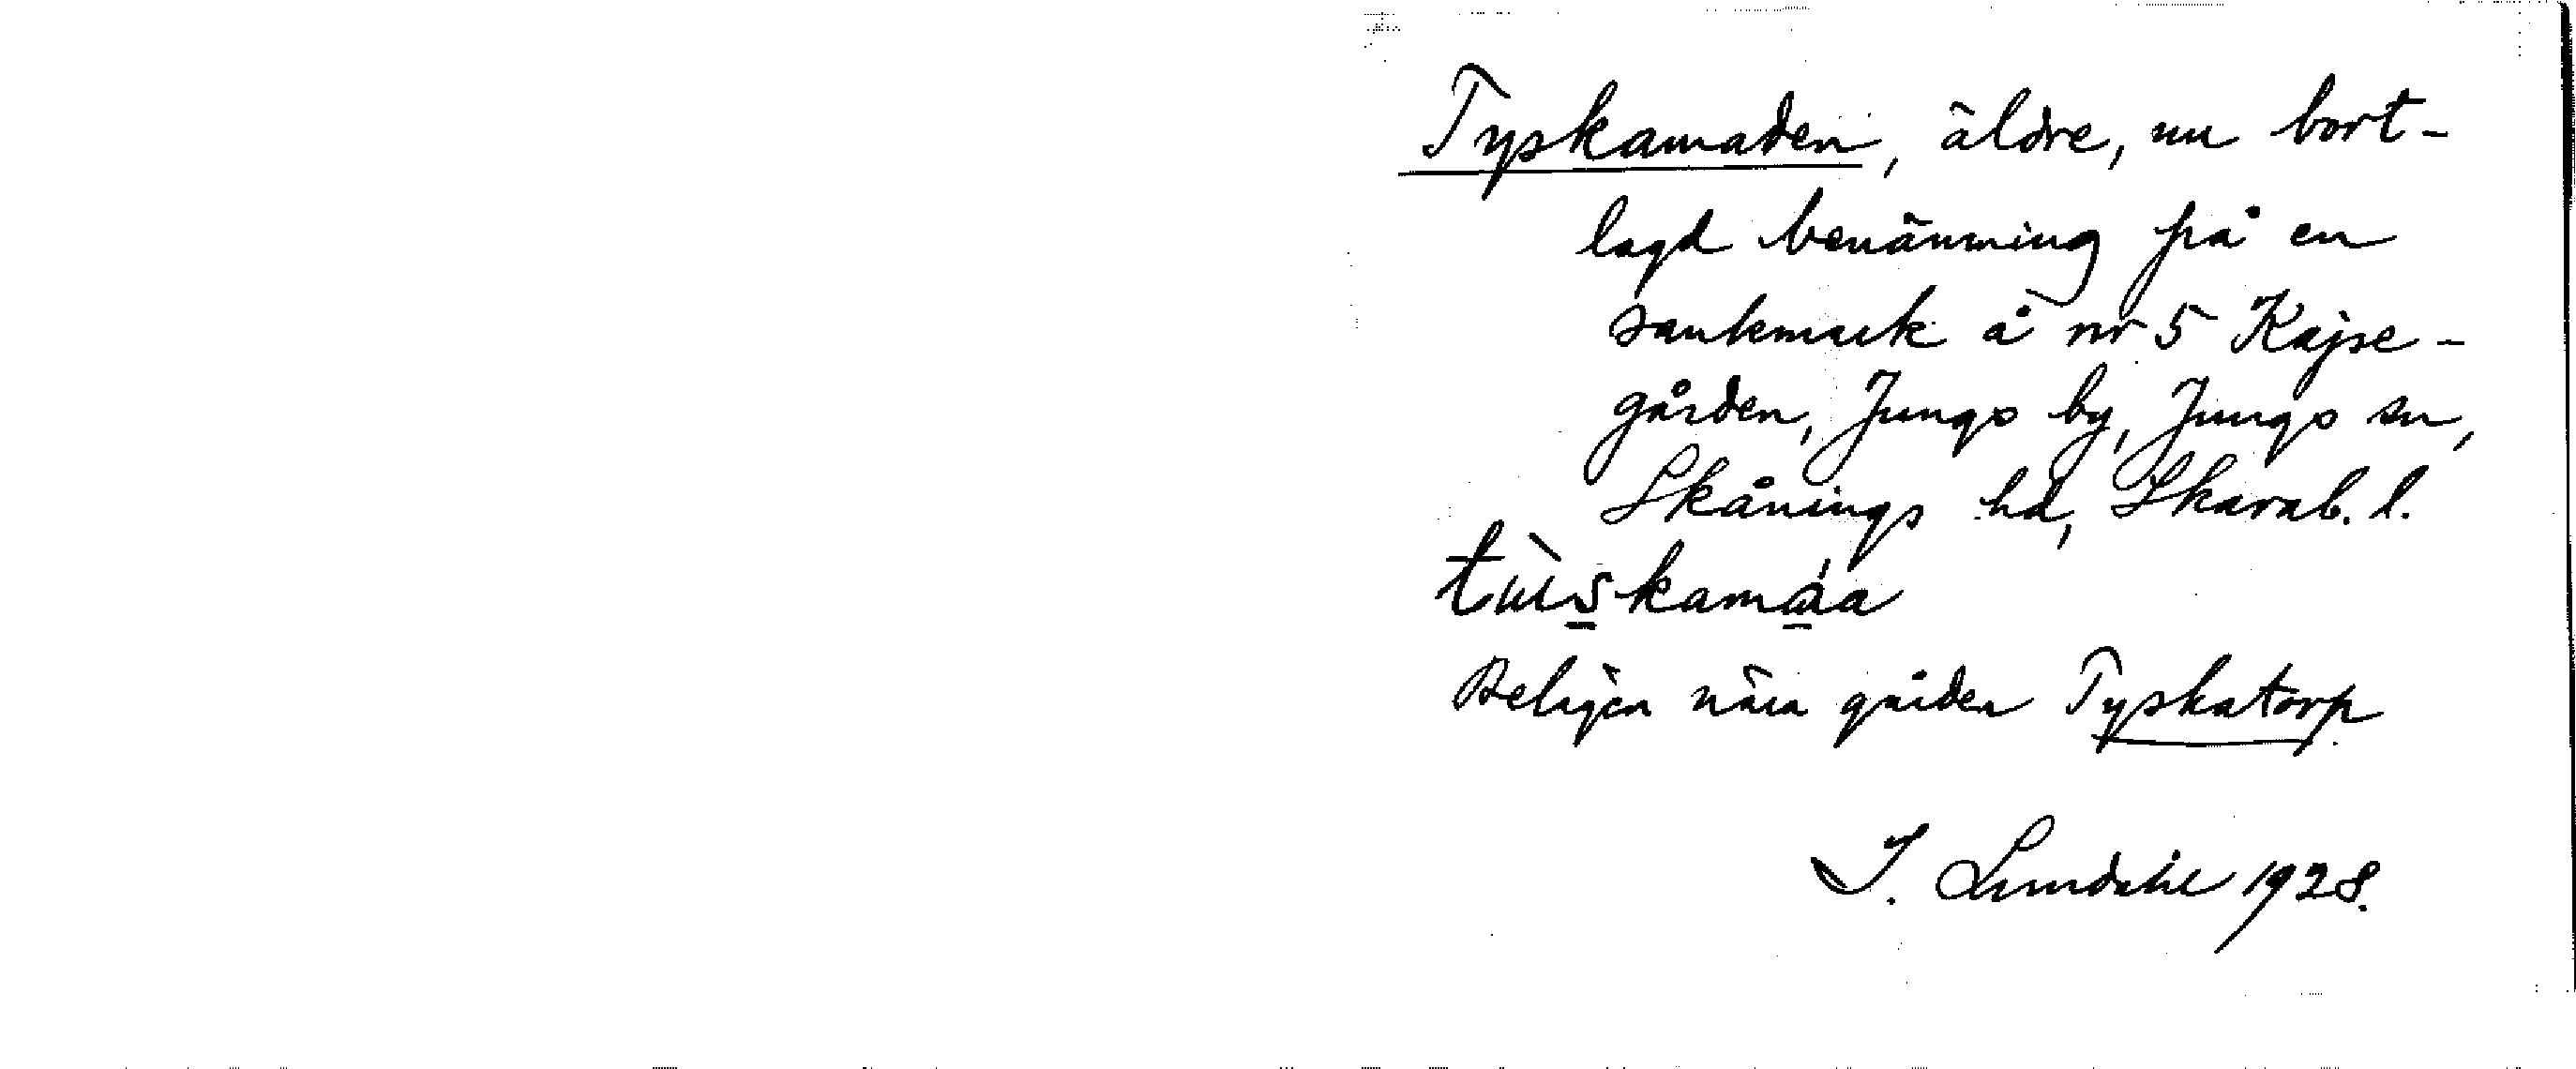 Tyskamaden, äldre, nu bort-
lagd benämning på en
sankmark å nr 5 Kajse-
gården, Jungs by, Jungs sn,
Skånings hd, Skarab. l.
Belägen nära gården Tyskatorp.
J. Lundahl 1928.